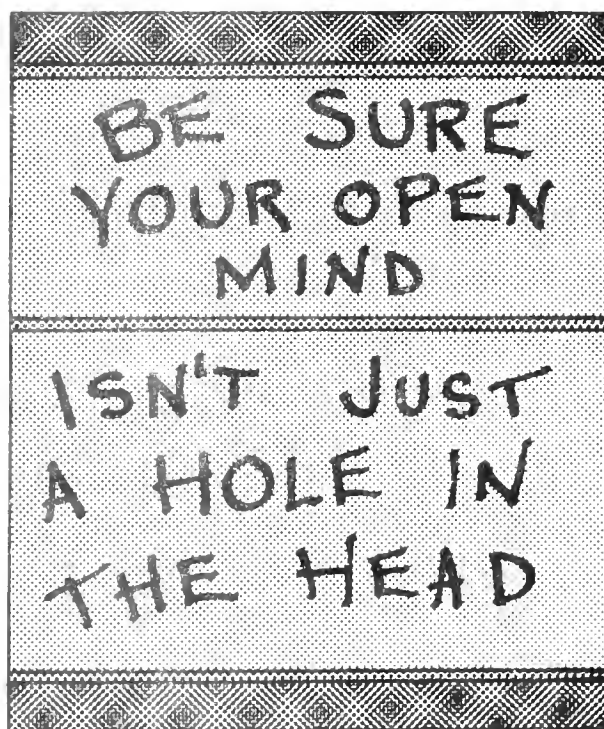 BE SURE
YOUR OPEN
MIND
ISN'T JUST
A HOLE IN
THE HEAD